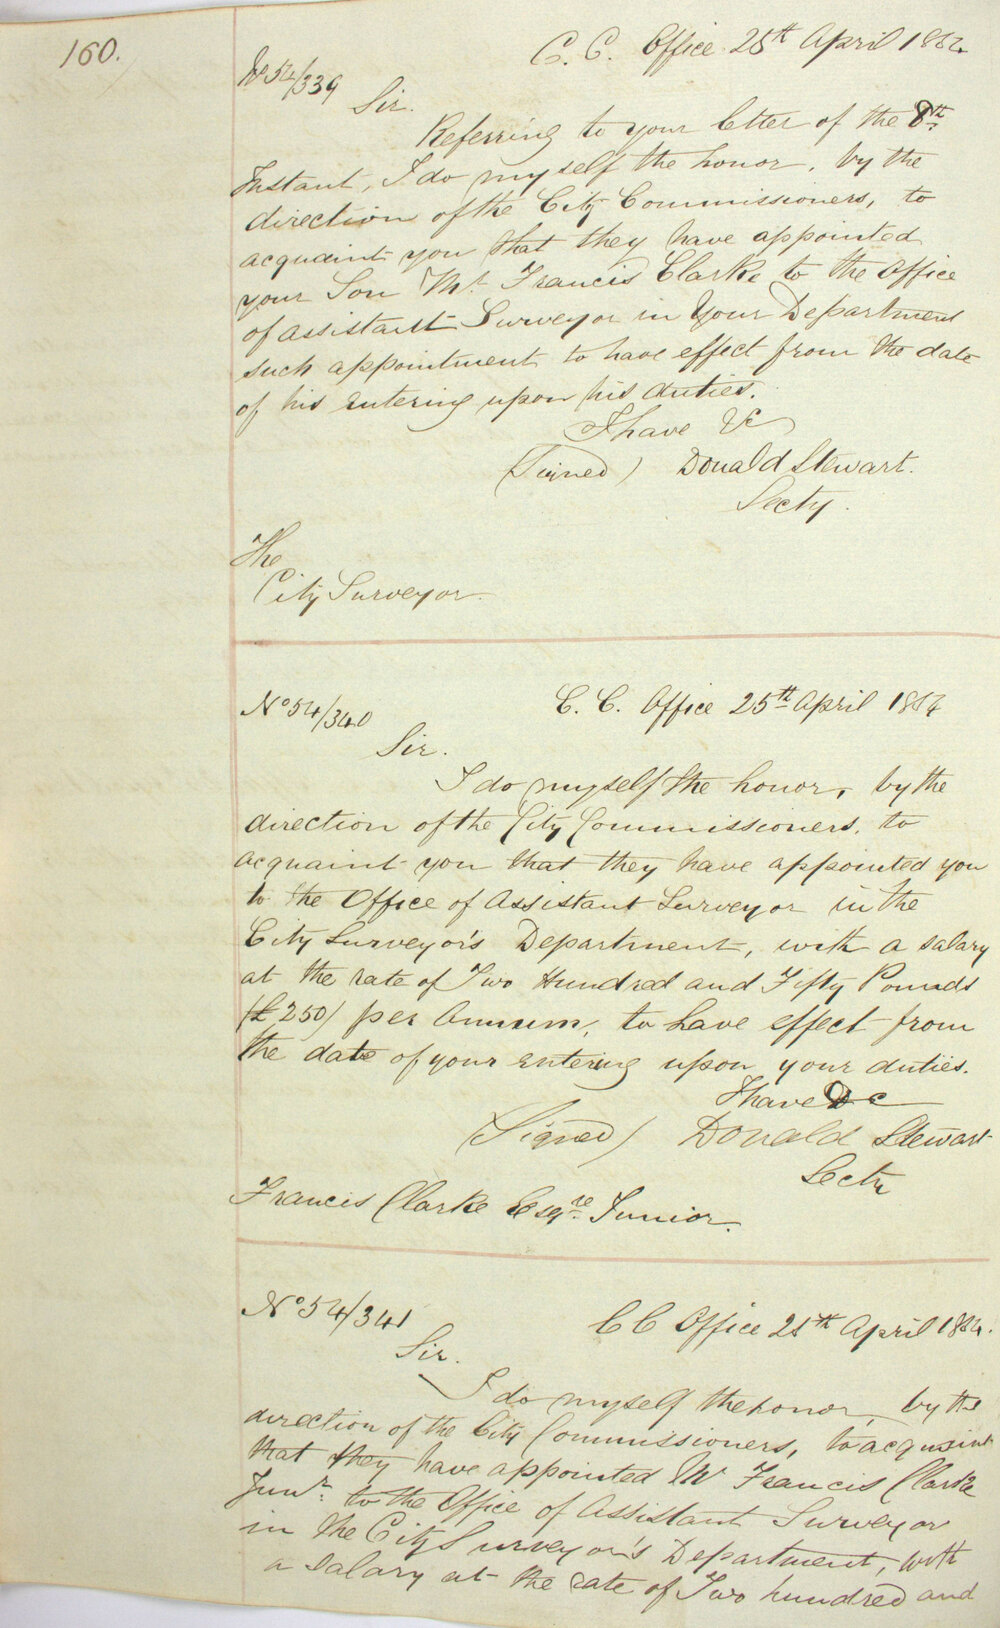 160.
C. C. Office 25th April 1854
No 54/339
Sir.
Referring to your letter of the 8th
Instant, I do myself the honor, by the
direction of the City Commissioners, to
acquaint you that they have appointed
your Son Mr. Francis Clarke to the Office
of Assistant Surveyor in Your Department
such appointment to have effect from the date
of his entering upon his duties.
I have &c
(Signed) Donald Stewart.
Secty.
The
City Surveyor.
No 54/340
C. C. Office 25th April 1854
Sir.
I do myself the honor, by the
direction of the City Commissioners, to
acquaint you that they have appointed you
to the Office of Assistant Surveyor in the
City Surveyor's Department, with a salary
at the rate of Two Hundred and Fifty Pounds
(£250) per Annum, to have effect from
the date of your entering upon your duties.
I have &c
(Signed) Donald Stewart
Secty
Francis Clarke Esqre Junior.
No 54/341
C C Office 25th April 1854.
Sir.
I do myself the honor, by the
direction of the City Commissioners, to acquaint
that they have appointed Mr Francis Clarke
Junr. to the Office of Assistant Surveyor
in the City Surveyor's Department, with
a salary at the rate of Two hundred and